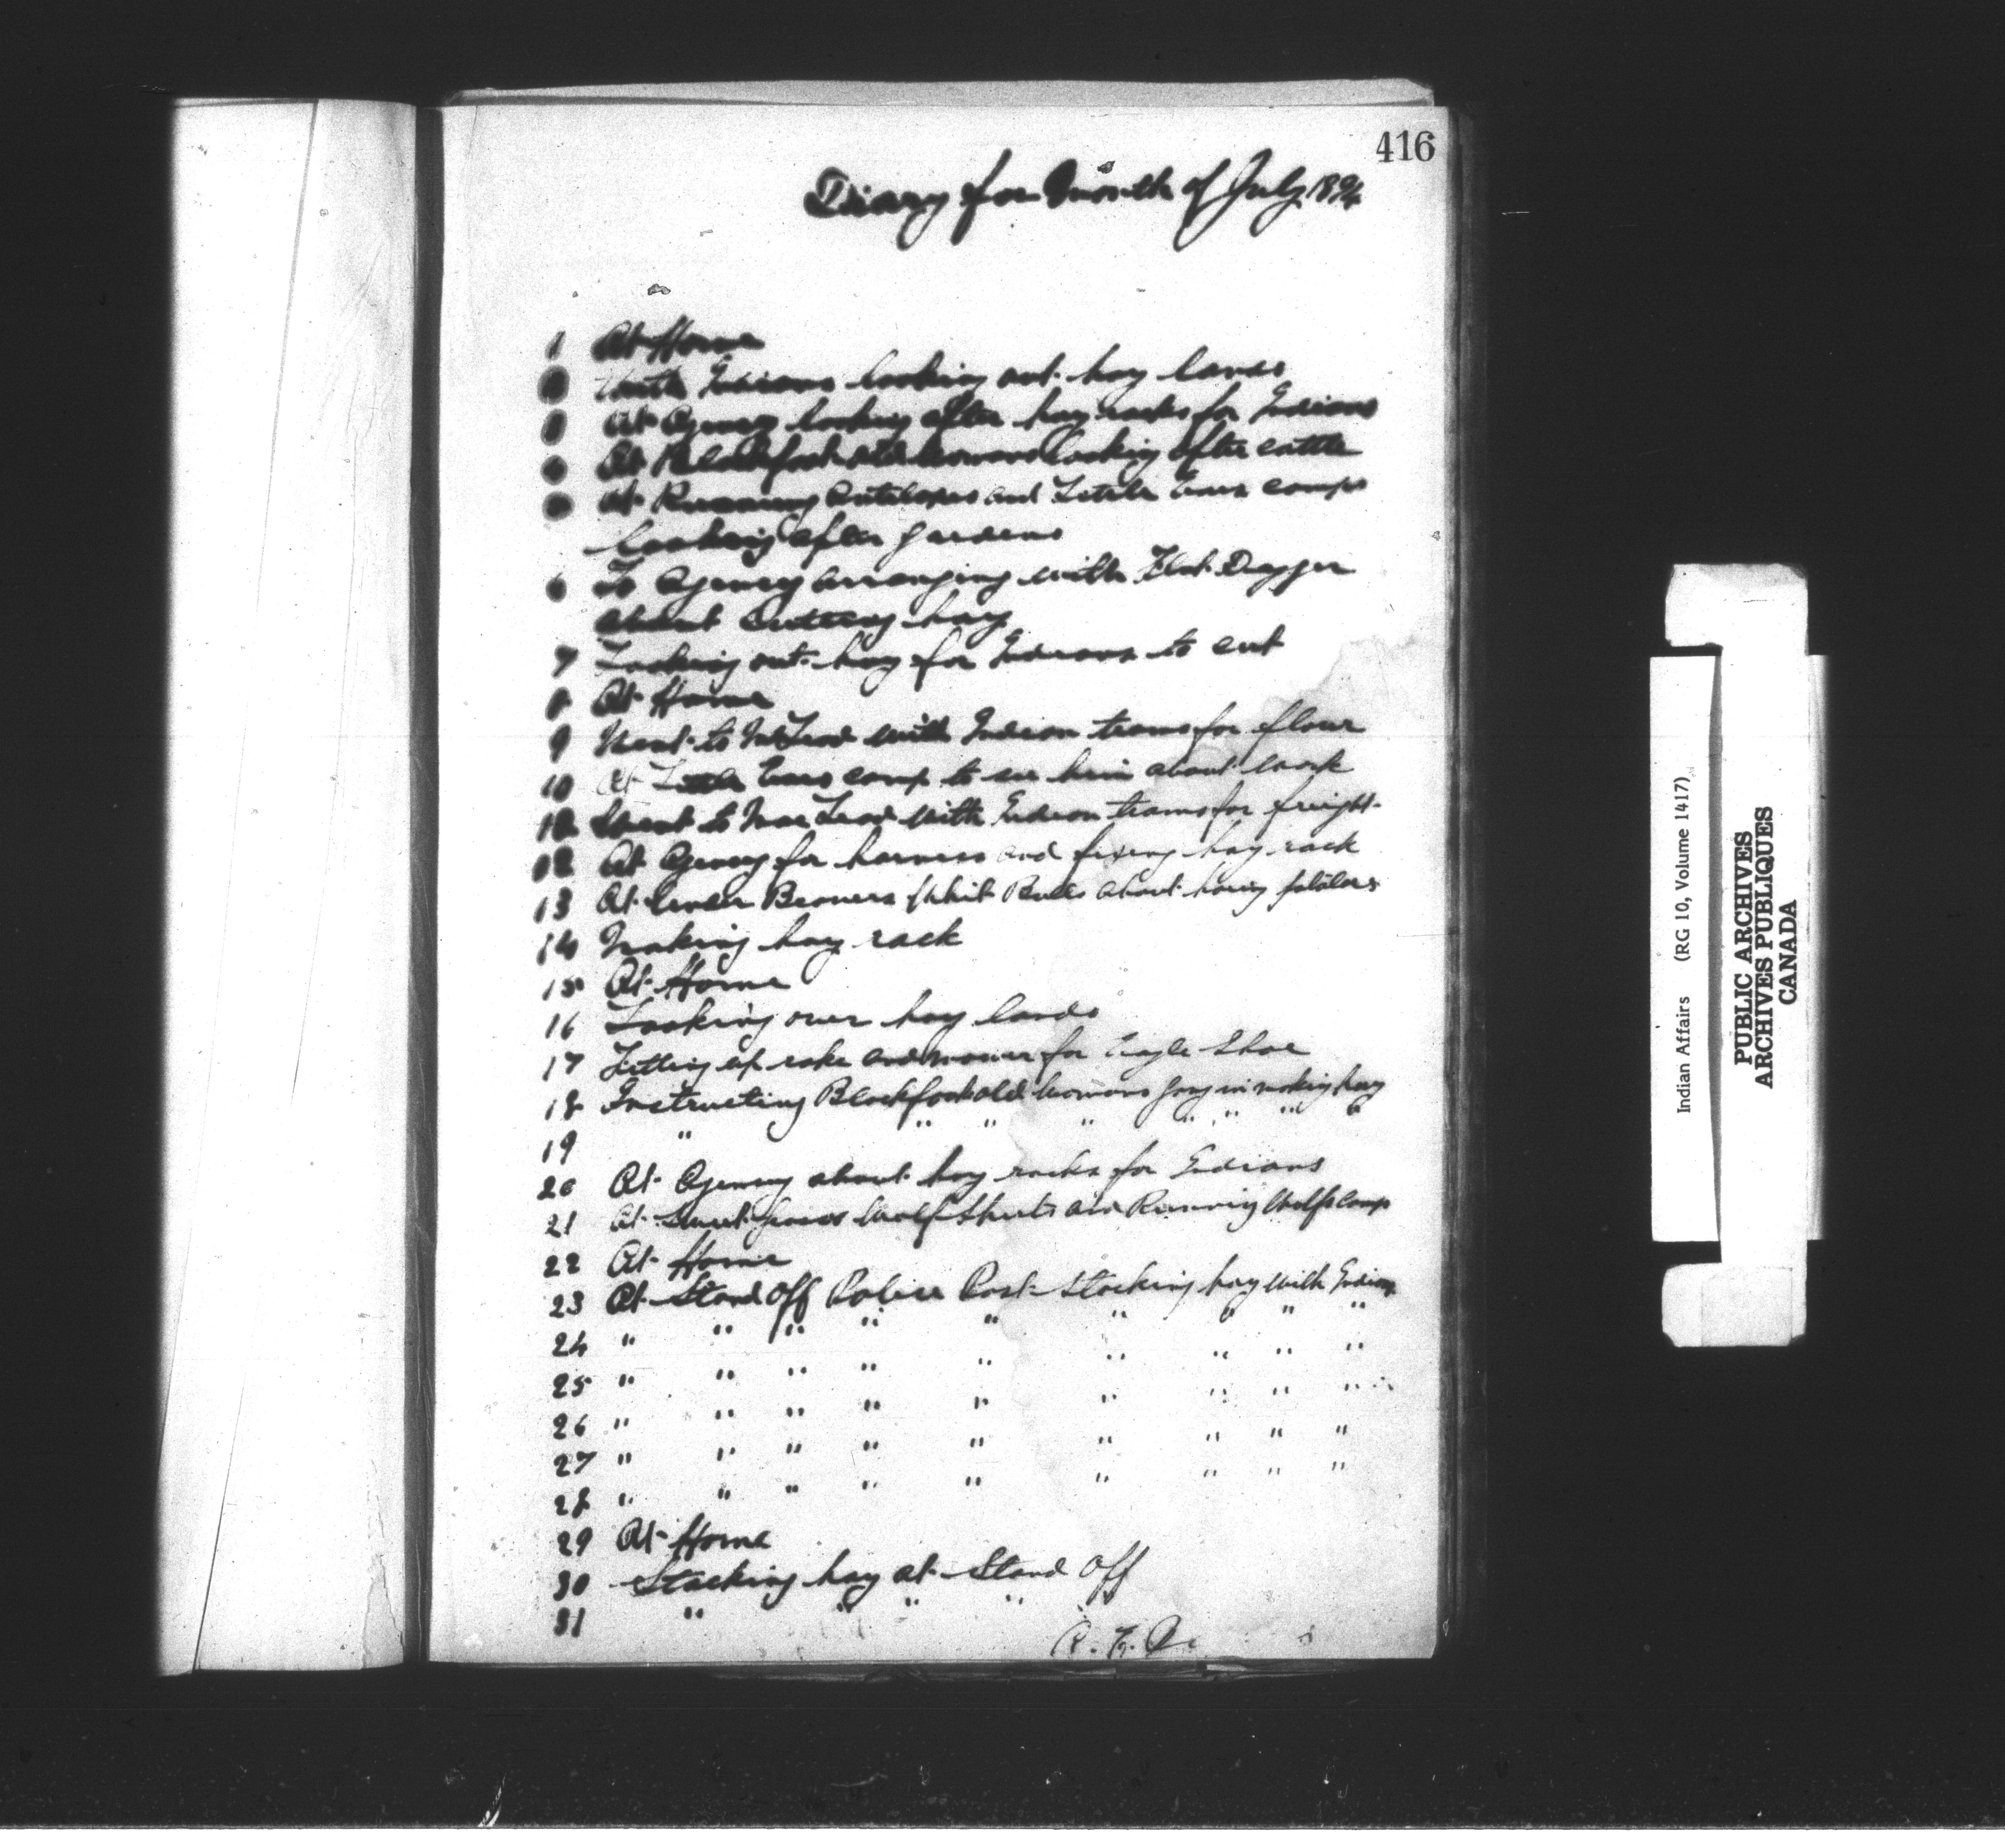 416
Diary for Month of July 1894
1 At Home
2 With Indians looking out hay lands
3 At Agency looking after hay racks for Indians
4 At Blackfoot old womans looking after cattle
5 At Running Antelopes and Little Ears camps
looking after gardens
6 To Agency arranging with Flat Dagger
about Cutting hay
7 Looking out hay for Indians to cut
8 At Home
9 Went to McLeod with Indian teams for flour
10 At Little Ears camp to see him about work
11 Went to MacLeod with Indian teams for freight
12 At Agency for harness and fixing hay rack
13 At Under Beavers White Bulls about hoeing potatoes
14 Making hay rack
15 At Home
16 Looking over hay lands
17 Fitting up rake and mower for Eagle Shoe
18 Instructing Blackfoot old womans gang in making hay
19 " " " " " " " "
20 At Agency about hay racks for Indians
21 At Sweet Grass Wolf Shirts and Running Wolfs camp
22 At Home
23 At Stand Off Police Post Stacking hay with Indians
24 " " " " " " " " "
25 " " " " " " " " "
26 " " " " " " " " "
27 " " " " " " " " "
28 " " " " " " " " "
29 At Home
30 Stacking hay at Stand Off
31 " " " "
Indian Affairs (RG 10, Volume 1417)
PUBLIC ARCHIVES
ARCHIVES PUBLIQUES
CANADA